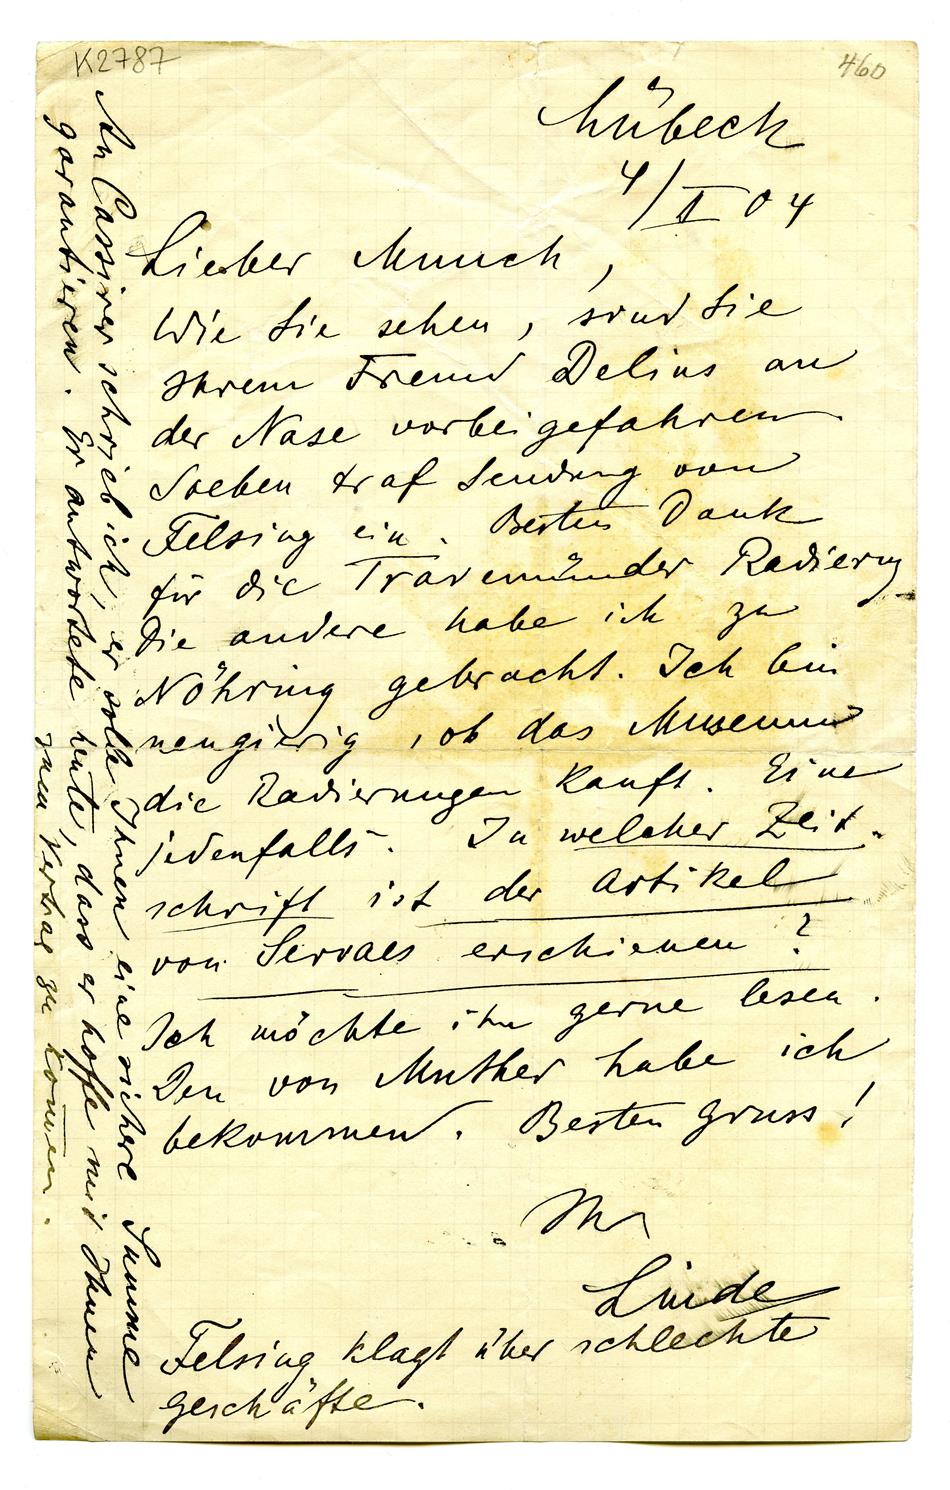 K2787
460
Lübeck
4/I 04
Lieber Munch,
Wie Sie sehen, sind Sie
Ihrem Freund Delius an
der Nase vorbeigefahren.
Soeben traf Sendung von
Felsing ein. Besten Dank
für die Travemünder Radierung
Die andere habe ich zu
Nöhring gebracht. Ich bin
neugierig, ob das Museum
die Radierungen kauft. Eine
jedenfalls. In welcher Zeit-
schrift ist der Artikel
von Servaes erschienen?
Ich möchte ihn gerne lesen.
Den von Muther habe ich
bekommen. Besten Gruss!
Ihr
Linde
Felsing klagt über schlechte
Geschäfte.
An Cassirer schrieb ich, er solle Ihnen eine sichere Summe
garantieren. Er antwortete heute, dass er hoffe mit Ihnen
zum Vertrag zu kom̅en.